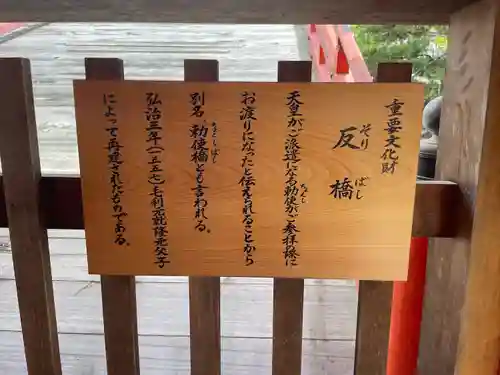 重要文化財
反橋
そり ばし
天皇がご派遣になる勅使がご参拝の際に
ちょくし
お渡りになったと伝えられることから
別名、勅使橋とも言われる。
ちょくしばし
弘治三年(一五五七)毛利元就隆元父子
によって再建されたものである。